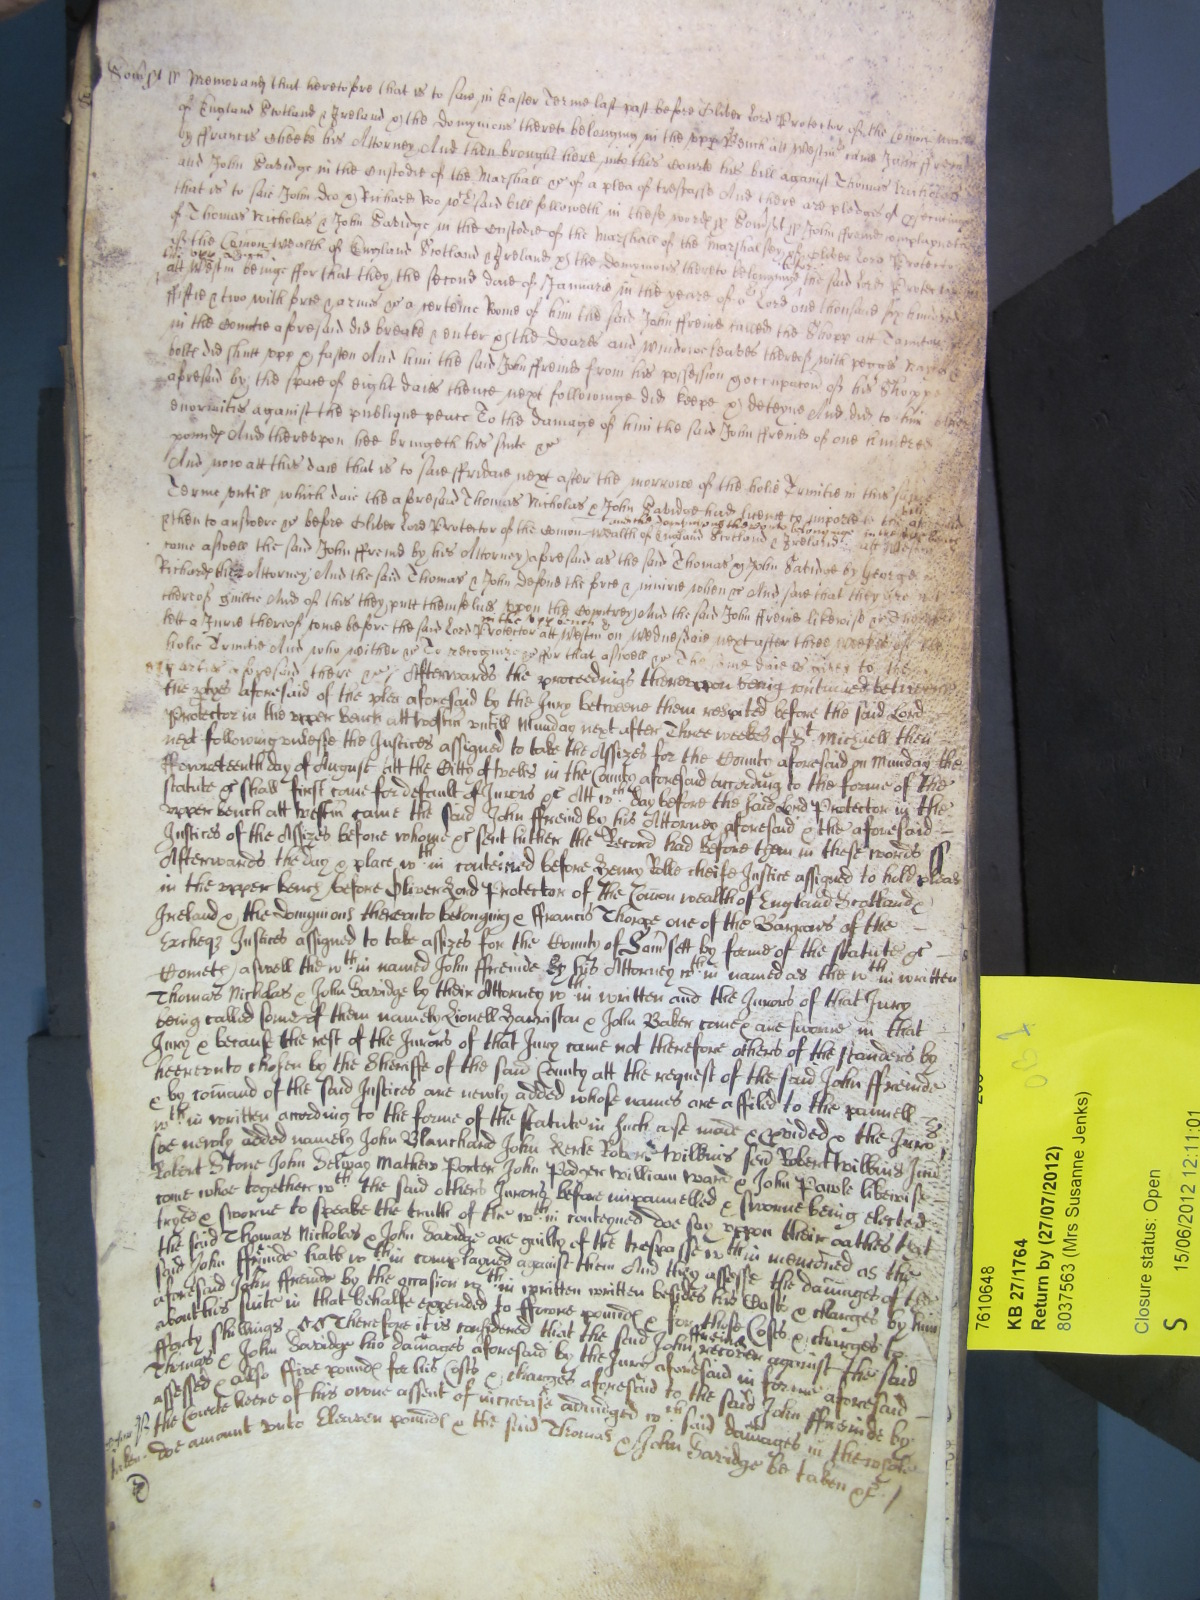 Som̃sett ss Memorand that heretofore that is to saie in Easter Terme last past before Oliver Lord Protector of the Comon wealth
of England Scotland & Ireland & the domynions thereto belonging in the upp Bench att Westm̃ came John ffreind
by ffrancis Cheeke his Attorney And then brought here into this Courte his bill against Thomas Nicholas
and John Savidge in the custodie of the Marshall &c of a plea of trespasse And there are pledges of
that is to saie John Doo & Richard Roo wch said bill followeth in these words ss Som̃sett ss John ffreind complayneth
of Thomas Nicholas & John Savidge in the custodie of the Marshall of the Marshalsey of Oliver Lord Protector
of the Comon wealth of England Scotland & Ireland & the domynions thereto belonging the said Lord Protector
att Westm̃ beinge ffor that they the second daie of Januarie in the yeare of or Lord one thousand six hundred
ffiftie & two with force & armes &c a certeine Roome of him the said John ffreind called the Shopp att Taunton
in the Countie aforesaid did breake & enter & the doares and windowe leaves thereof with
bolts did shutt upp & fasten And him the said John ffreind from his possession & occupacon of his Shoppe
aforesaid by the space of eight daies thence next followinge did keepe & deteyne And did to him other
enormities against the publique peace To the damage of him the said John ffreind of one hundred
pounds And thereupon hee bringeth his suite &c
And now att this daie that is to saie ffridaie next after the morrowe of the holie Trinitie in this same
Terme untill which daie the aforesaid Thomas Nicholas & John Savidge had licence to imparle to the bill aforesaid
& then to answere &c before Oliver Lord Protector of the Comon wealth of England Scotland & Ireland and the domynions thereto belonginge in the upp bench att Westm̃
come aswell the said John ffreind by his Attorney aforesaid as the said Thomas & John Savidge by George
Richards their Attorney And the said Thomas & John defend the force & iniurie when &c And saie that they are not
thereof guiltie And of this they putt themselves upon the Countrey And the said John ffreind likewise &c Therefore
lett a Jurie thereof come before the said Lord Protector in the upp bench att Westm̃ on Wednesdaie next after three weekes of the
holie Trinitie And who neither &c To recognize &c ffor that aswell &c The same daie is given to the
parties aforesaid there &c Afterwards the proceedings thereuppon being continued betweene
the ptyes aforesaid of the plea aforesaid by the Jury betweene them respited before the said Lord
Protector in the upper bench att Westm̃ untill Munday next after Three weekes of St Michaell then
next following unlesse the Justices assigned to take the Assizes for the County aforesaid on Munday the
day of August att the Citty of Wells in the County aforesaid according to the forme of the
statute &c shall first come for default of Jurors &c Att wch day before the said Lord Protector in the
upper bench att Westm̃ came the said John ffreind by his Attorney aforesaid & the aforesaid
Justices of the Assizes before whome &c sent hither the Record had before them in these words ss
Afterwards the day & place wthin conteined before Henry Rolle cheife Justice assigned to hold pleas
in the upper bench before Oliver Lord Protector of the Com̃on wealth of England Scotland &
Ireland & the domynions thereunto belonging & ffrancis Thorpe one of the Barrons of the
Excheqr Justices assigned to take assizes for the County of Som̃sett by forme of the statute &c
Cometh aswell the wthin named John ffreinde by his Attorney wthin named as the wthin written
Thomas Nicholas & John Savidge by their Attorney wthin written and the Jurors of that Jury
being called some of them namely Lionell Harriston & John Baker come & are sworne in that
Jury & because the rest of the Jurors of that Jury came not therefore others of the standers by
heereunto chosen by the Sheriffe of the said County att the request of the said John ffreinde
& by com̃and of the said Justices are newly added whose names are affiled to the pannell
wthin written according to the forme of the statute in such case made & pvided & the Jurors
soe newly added namely John Blanchard John Robert Willims senr Robert Willims Junr
Robert Stone John Selway Mathew Porter John Podger William Ward & John Pawle likewise
come whoe together wth the said others Jurors before impannelled & sworne being elected
tryed & sworne to speake the truth of the wthin conteyned doe say uppon their oathes that
the said Thomas Nicholas & John Savidge are guilty of the trespasse wthin menconed as the
said John ffreinde hath wthin complayned against them And they assesse the damages of the
aforesaid John ffreinde by the occasion wthin written besides his Costs & charges by him
about his suite in that behalfe expended to ffowre pounds & for those Costs & charges to
fforty shillings &c Therefore it is considered that the said John ffreinde recover against the said
Thomas & John Savidge his damages aforesaid by the Jury aforesaid in forme aforesaid
assessed & also ffive pounds for his Costs & charges aforesaid to the said John ffreinde by
the Courte heere of his owne assent of increase adiudged wch said damages in the whole
doe amount unto Eleaven pounds & the said Thomas & John Savidge be taken &c
7610648
KB 27/1764
Return by (27/07/2012)
8037563 (Mrs Susanne Jenks)
Closure status: Open
S
15/06/2012 12:11:01